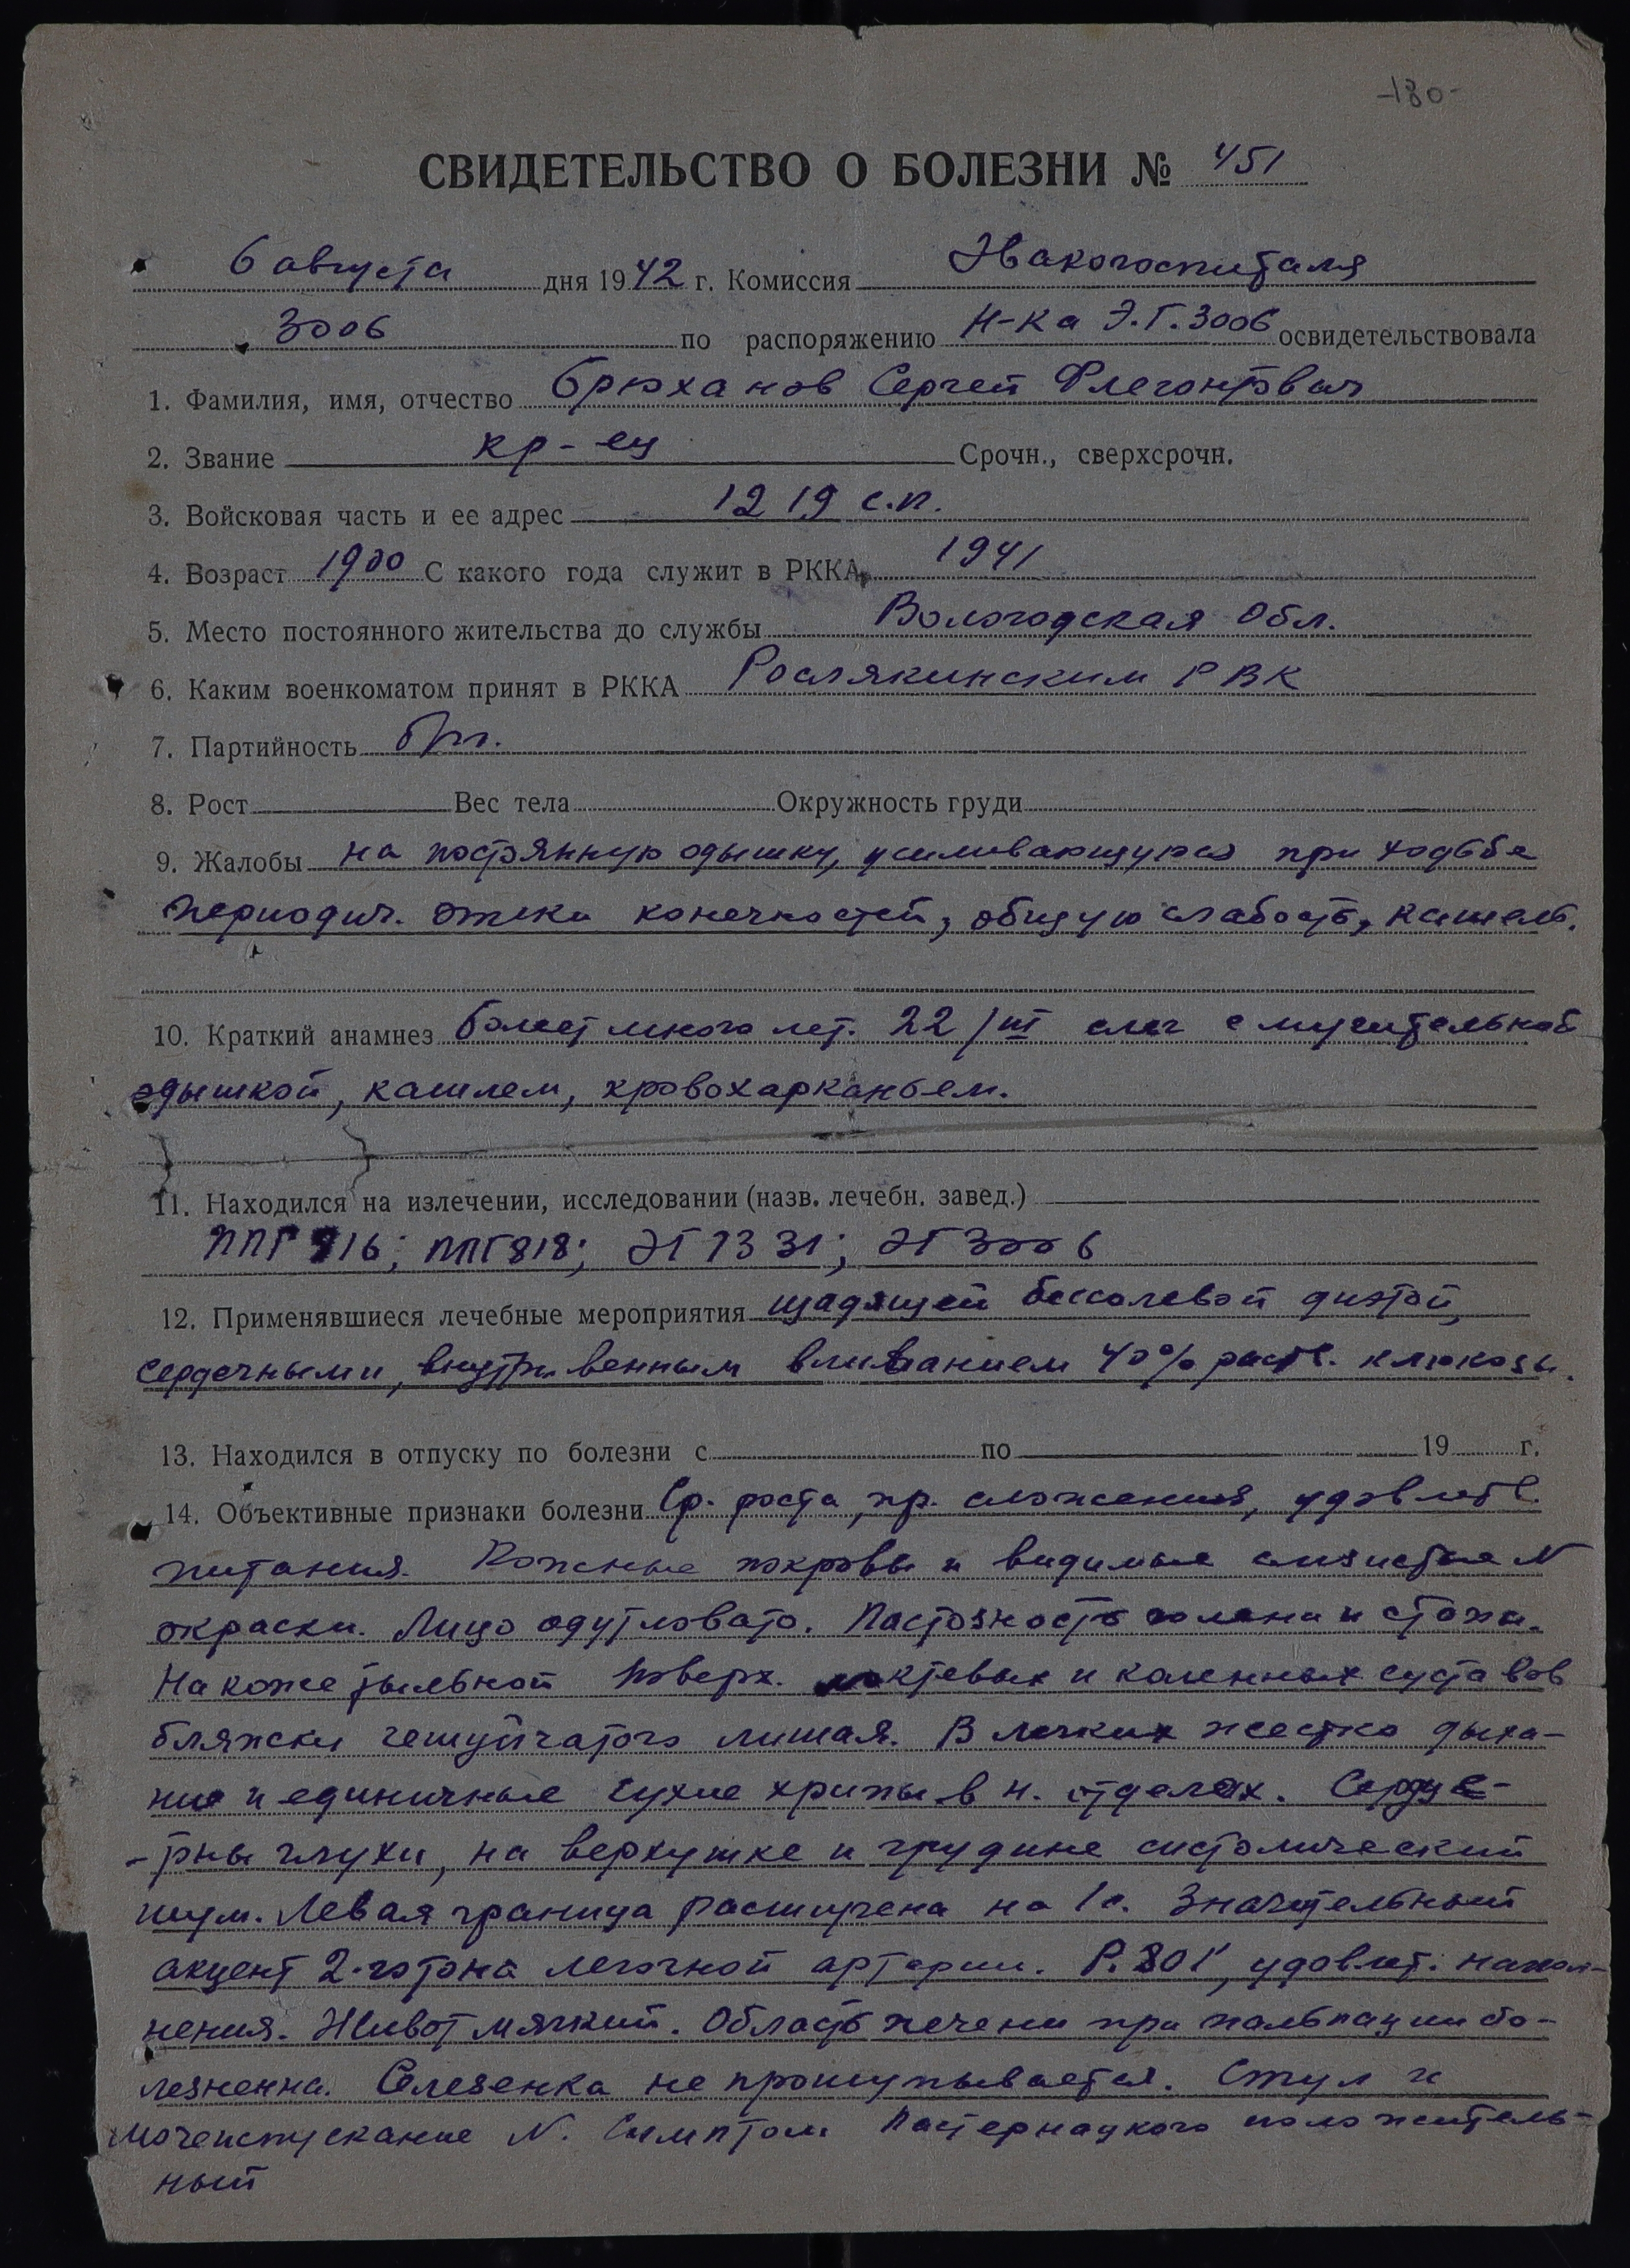 -180-
СВИДЕТЕЛЬСТВО О БОЛЕЗНИ № 451
6 августа дня 1942 г. Комиссия Эвакогоспиталя
3006 по распоряжению Н-ка Э.Г. 3006 освидетельствовала
1. Фамилия, имя, отчество Брюханов Сергей Флегонтович
2. Звание кр-ец Срочн., сверхсрочн.
3. Войсковая часть и ее адрес 1219 с.п.
4. Возраст 1900 С какого года служит в РККА 1941
5. Место постоянного жительства до службы Вологодская Обл.
6. Каким военкоматом принят в РККА Рослякинским РВК
7. Партийность б/п.
8. Рост Вес тела Окружность груди
9. Жалобы на постоянную одышку, усиливающуюся при ходьбе
периодич. отеки конечностей, общую слабость, кашель.
10. Краткий анамнез болеет много лет. 22/III слег с мучительной
одышкой, кашлем, кровохарканьем.
11. Находился на излечении, исследовании (назв. лечебн. завед.)
ППГ 916; ППГ 818; ЭГ 1331; ЭГ 3006
12. Применявшиеся лечебные мероприятия щадящей бессолевой диэтой,
сердечными, внутривенным вливанием 40% раств. глюкозы.
13. Находился в отпуску по болезни с по 19 г.
14. Объективные признаки болезни Ср. роста, пр. сложения, удовлетв.
питания. Кожные покровы и видимые слизистые N
окраски. Лицо одутловато. Пастозность голени и стопы.
На коже тыльной поверх. локтевых и коленных суставов
бляжски чешуйчатого лишая. В легких жестко дыха-
ние и единичные сухие хрипы в н. отделах. Сердце-
-тоны глухи, на верхушке и грудине систолический
шум. Левая граница расширена на 1с. Значительный
акцент 2-го тона легочной артерии. P. 80 1', удовлет. напол-
нения. Живот мягкий. Область печени при пальпации бо-
лезненна. Селезенка не прощупывается. Стул и
мочеиспускание N. Симптом Пастернацкого положитель-
ный